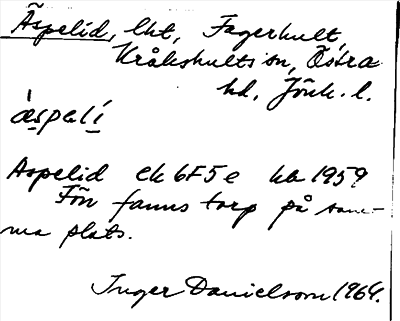 Äspelid, lht, Fagerhult,
Kråkshults sn, Östra
hd, Jönk. l.
æ̀spəlí
Aspelid ek 6F5e ha 1959
Förr fanns torp på sam-
ma plats.
Inger Danielsson 1964.